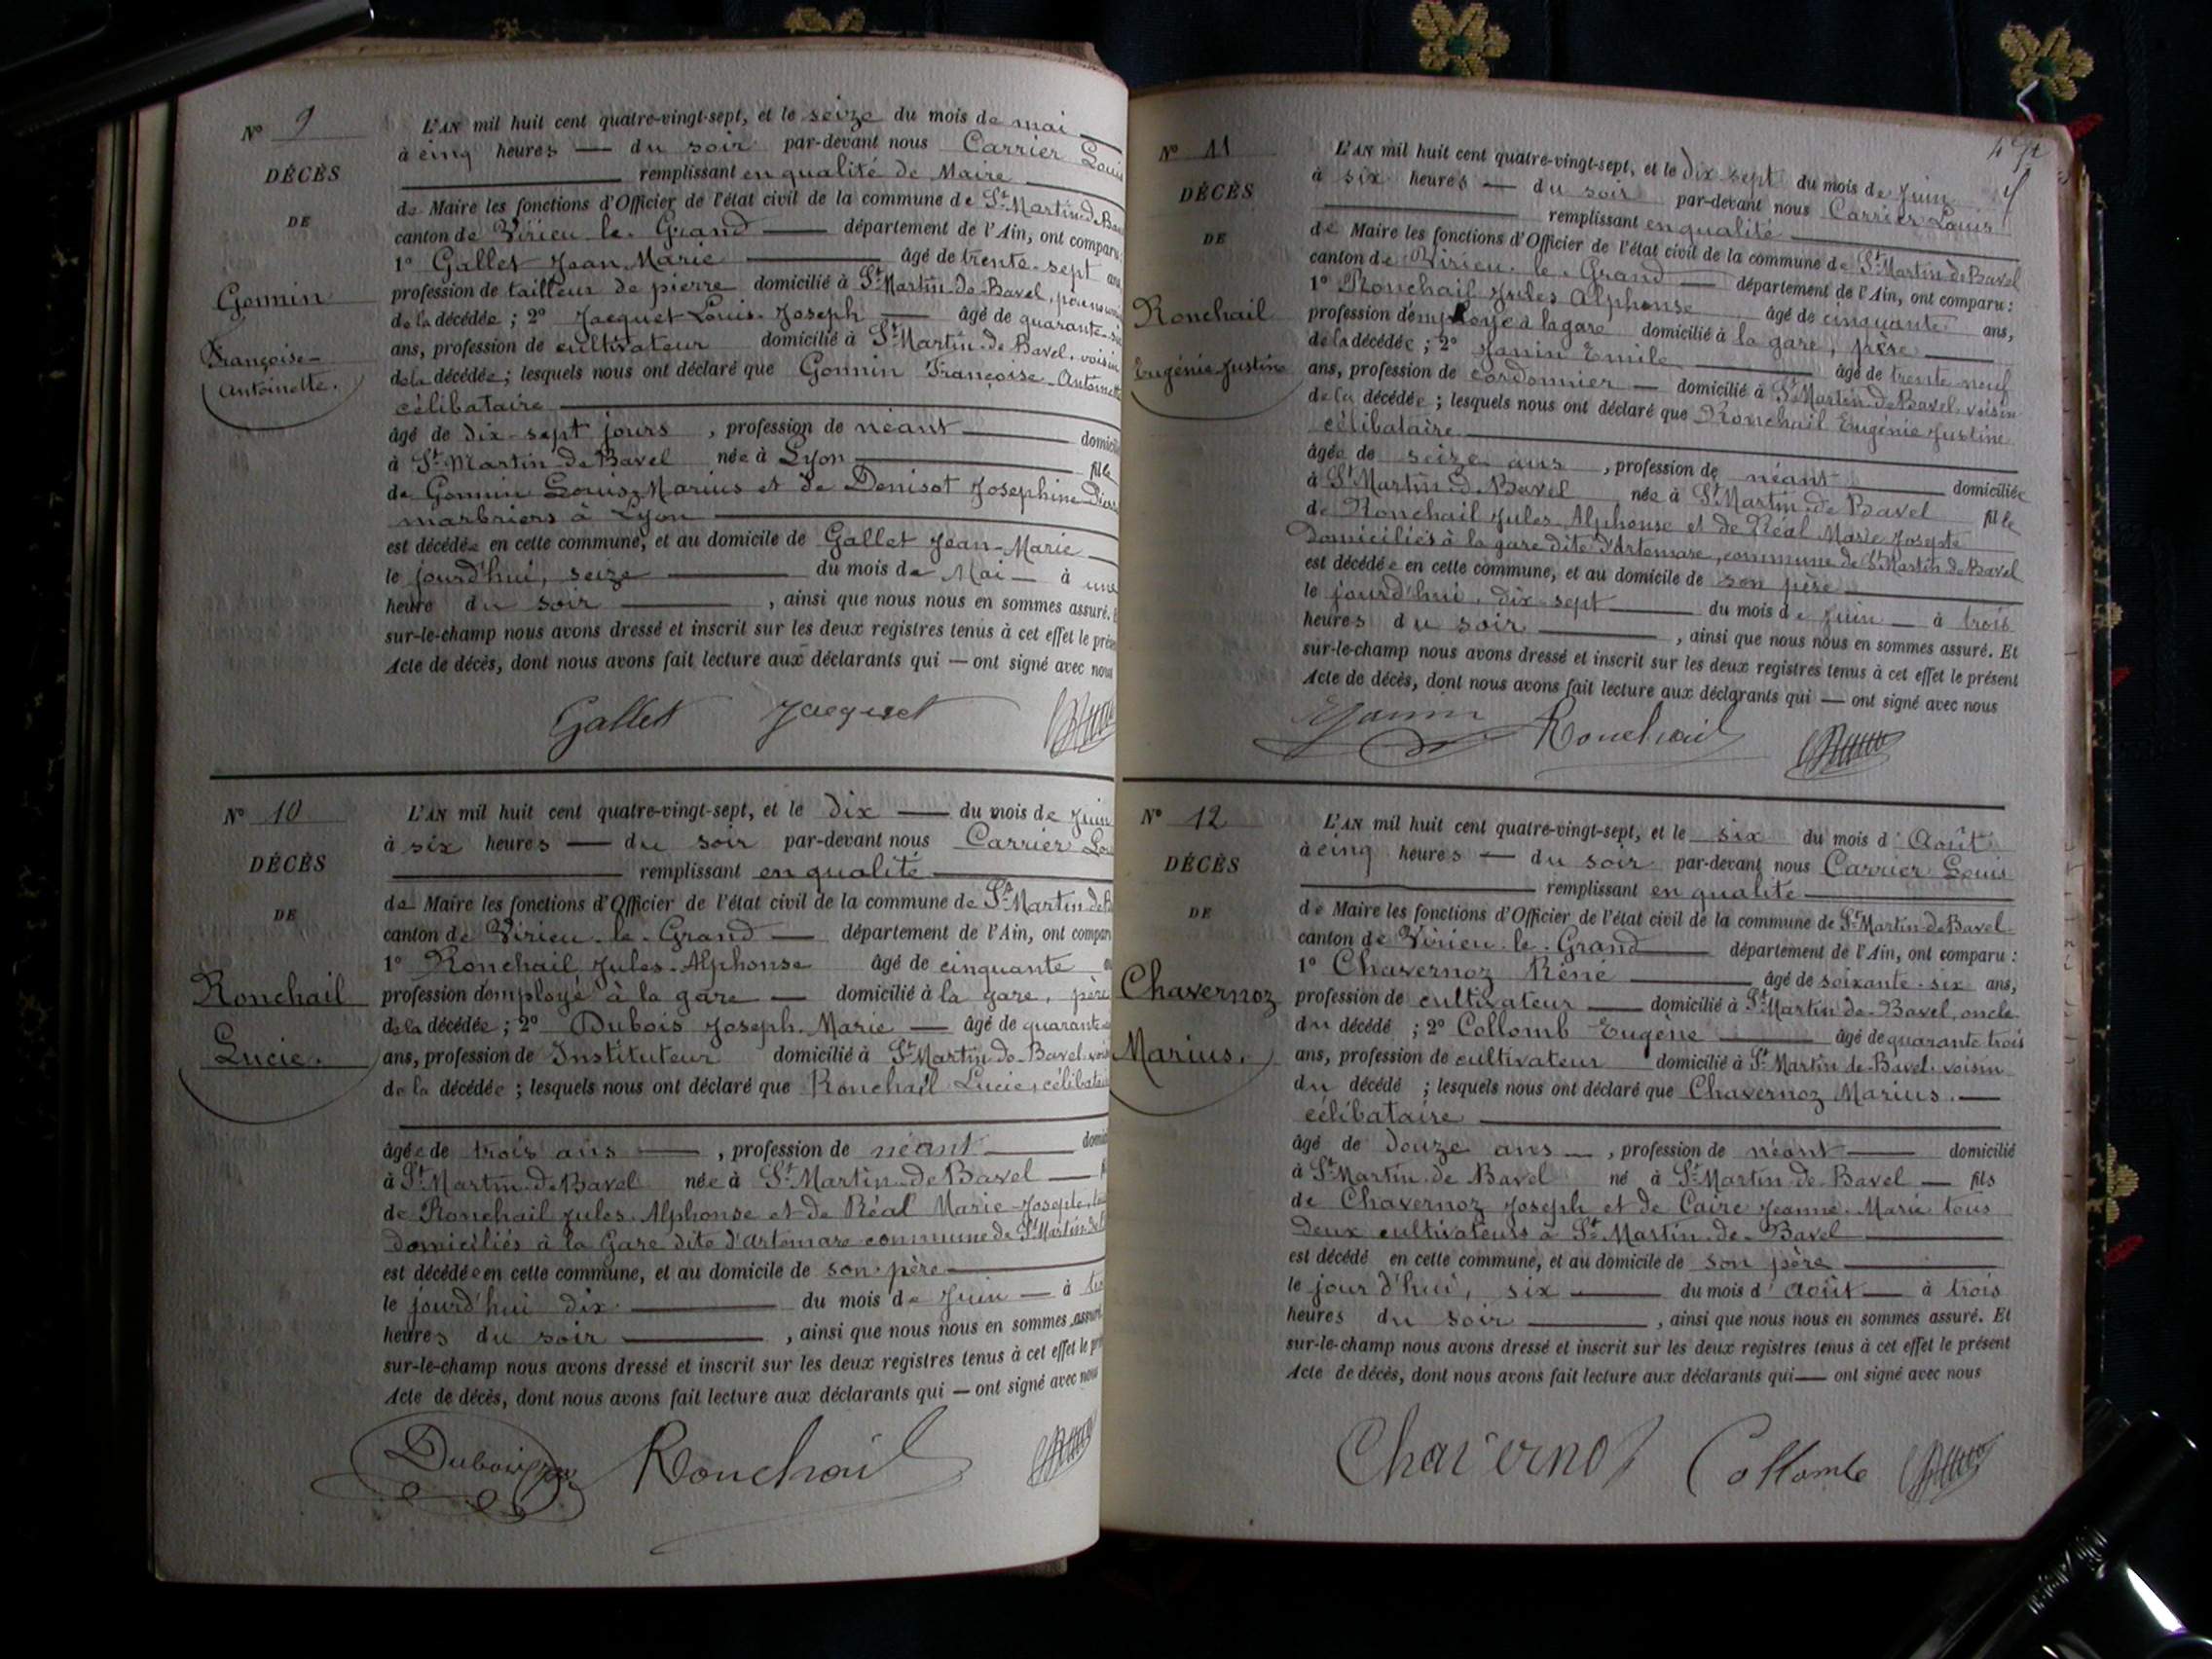 N° 9
DÉCÈS
DE
Gonnin
Françoise-
Antoinette.
L'AN mil huit cent quatre-vingt-sept, et le seize du mois de mai
à cinq heures — du soir par-devant nous Carrier Louis
remplissant en qualité de Maire
de Maire les fonctions d'Officier de l'état civil de la commune de St Martin-de-Ba
canton de Virieu-le-Grand — département de l'Ain, ont comparu:
1° Gallet Jean Marie — âgé de trente-sept ans,
profession de tailleur de pierre domicilié à St Martin-de-Bavel,
de la décédée ; 2° Jacquet Louis-Joseph — âgé de quarante-
ans, profession de cultivateur domicilié à St Martin-de-Bavel, voisin
de la décédée ; lesquels nous ont déclaré que Gonnin Françoise-Antoinette
célibataire
âgé de dix-sept jours , profession de néant — domicili
à St Martin-de-Bavel née à Lyon — fille
de Gonnin Louis-Marius et de Denisot Josephine
marbriers à Lyon
est décédée en cette commune, et au domicile de Gallet Jean-Marie
le jourd'hui, seize — du mois de Mai — à une
heure du soir — , ainsi que nous nous en sommes assuré. E
sur-le-champ nous avons dressé et inscrit sur les deux registres tenus à cet effet le prése
Acte de décès, dont nous avons fait lecture aux déclarants qui — ont signé avec nous
Gallet Jacquet
N° 10
DÉCÈS
DE
Ronchail
Lucie.
L'AN mil huit cent quatre-vingt-sept, et le dix — du mois de Juin
à six heures — du soir par-devant nous Carrier Lou
remplissant en qualité
de Maire les fonctions d'Officier de l'état civil de la commune de St Martin de B
canton de Virieu-le-Grand — département de l'Ain, ont compar
1° Ronchail Jules-Alphonse âgé de cinquante a
profession d'employé à la gare — domicilié à la gare, père
de la décédée ; 2° Dubois Joseph-Marie — âgé de quarante-
ans, profession de Instituteur domicilié à St Martin-de-Bavel, vois
de la décédée ; lesquels nous ont déclaré que Ronchail Lucie, célibatai
âgée de trois ans — , profession de néant — domici
à St Martin-de-Bavel née à St Martin-de-Bavel — f
de Ronchail Jules-Alphonse et de Réal Marie-Josepte,
domiciliés à la Gare dite d'Artemare commune de St Martin-de
est décédée en cette commune, et au domicile de son père
le jourd'hui dix — du mois de Juin — à
heures du soir — , ainsi que nous nous en sommes assuré.
sur-le-champ nous avons dressé et inscrit sur les deux registres tenus à cet effet le pré
Acte de décès, dont nous avons fait lecture aux déclarants qui — ont signé avec nous
Dubois Ronchail
N° 11
DÉCÈS
DE
Ronchail
Eugénie Justine
L'AN mil huit cent quatre-vingt-sept, et le dix-sept du mois de Juin
à six heures — du soir par-devant nous Carrier Louis
remplissant en qualité
de Maire les fonctions d'Officier de l'état civil de la commune de St Martin de Bavel
canton de Virieu-le-Grand — département de l'Ain, ont comparu :
1° Ronchail Jules Alphonse âgé de cinquante ans,
profession d'employé à la gare domicilié à la gare, père
de la décédée ; 2° Janin Emile — âgé de trente neuf
ans, profession de cordonnier — domicilié à St Martin-de-Bavel, voisin
de la décédée ; lesquels nous ont déclaré que Ronchail Eugénie Justine
célibataire
âgée de seize ans , profession de néant — domiciliée
à St Martin-de-Bavel née à St Martin-de-Bavel fille
de Ronchail Jules-Alphonse et de Réal Marie Josepte
Domiciliés à la gare dite d'Artemare, commune de St Martin de Bavel
est décédée en cette commune, et au domicile de son père
le jourd'hui, dix-sept — du mois de Juin — à trois
heures du soir — , ainsi que nous nous en sommes assuré. Et
sur-le-champ nous avons dressé et inscrit sur les deux registres tenus à cet effet le présent
Acte de décès, dont nous avons fait lecture aux déclarants qui — ont signé avec nous
EJanin Ronchail
N° 12
DÉCÈS
DE
Chavernoz
Marius.
L'AN mil huit cent quatre-vingt-sept, et le six du mois d'Août
à cinq heures — du soir par-devant nous Carrier Louis
remplissant en qualité
de Maire les fonctions d'Officier de l'état civil de la commune de St Martin-de-Bavel
canton de Virieu-le-Grand — département de l'Ain, ont comparu :
1° Chavernoz Réné — âgé de soixante-six ans,
profession de cultivateur — domicilié à St Martin-de-Bavel, oncle
du décédé ; 2° Collomb Eugene — âgé de quarante trois
ans, profession de cultivateur domicilié à St Martin de-Bavel, voisin
du décédé ; lesquels nous ont déclaré que Chavernoz Marius. —
célibataire
âgé de douze ans — , profession de néant — domicilié
à St Martin-de Bavel né à St Martin-de Bavel — fils
de Chavernoz Joseph et de Caire Jeanne-Marie tous
deux cultivateurs à St Martin-de-Bavel
est décédé en cette commune, et au domicile de son père
le jour d'hui, six — du mois d'août — à trois
heures du soir — , ainsi que nous nous en sommes assuré. Et
sur-le-champ nous avons dressé et inscrit sur les deux registres tenus à cet effet le présent
Acte de décès, dont nous avons fait lecture aux déclarants qui — ont signé avec nous
Chavernoz Collomb